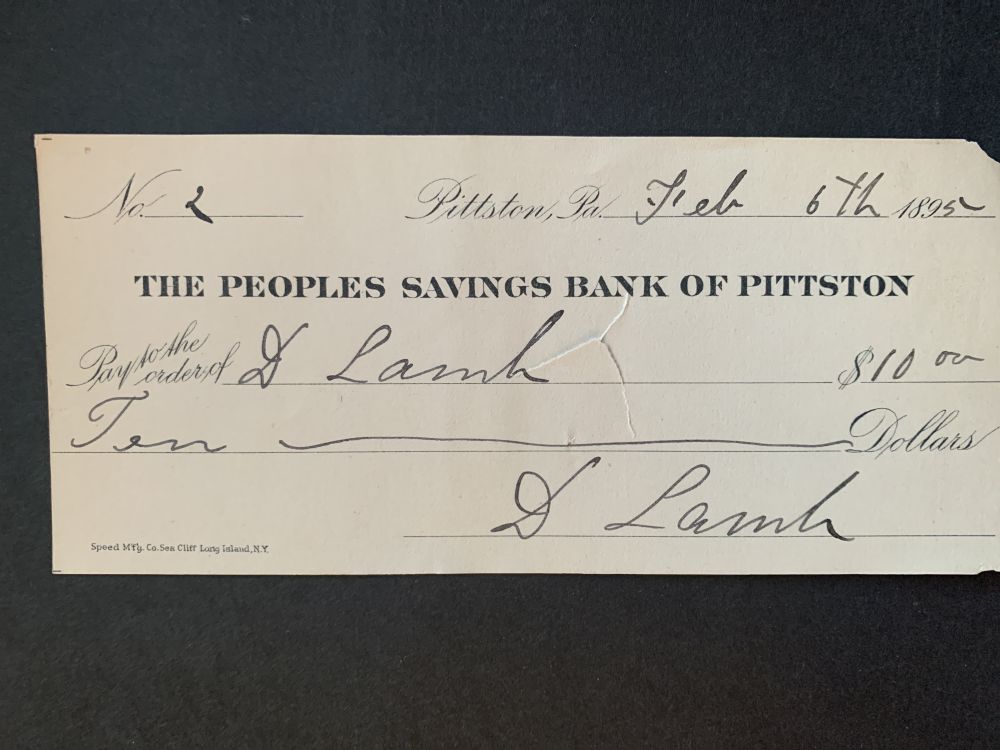 No. 2 Pittston, Pa. Feb 6th 1895
THE PEOPLES SAVINGS BANK OF PITTSTON
Pay to the order of D Lamb $10 00
Ten Dollars
D Lamb
Speed M'f'g. Co. Sea Cliff Long Island, N.Y.